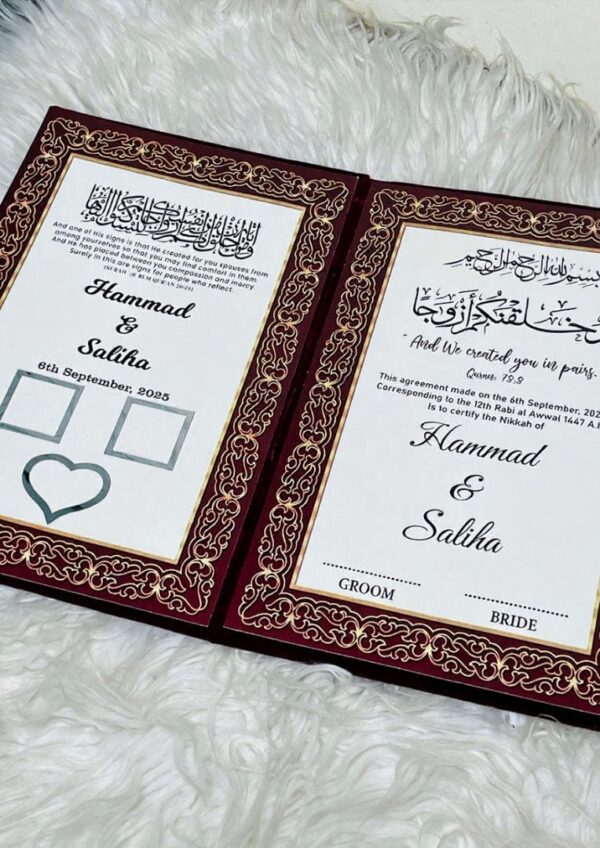 And one of His signs is that He created for you spouses from
among yourselves so that you may find comfort in them.
And He has placed between you compassion and mercy
Surely in this are signs for people who reflect.
Hammad
&
Saliha
6th September, 2025
بسم الله الرحمن الرحيم
وخلقنكم أزوجا
"And We created you in pairs.
Quran: 78:8
This agreement made on the 6th September, 202
Corresponding to the 12th Rabi al Awwal 1447 A.
Is to certify the Nikkah of
Hammad
&
Saliha
GROOM
BRIDE